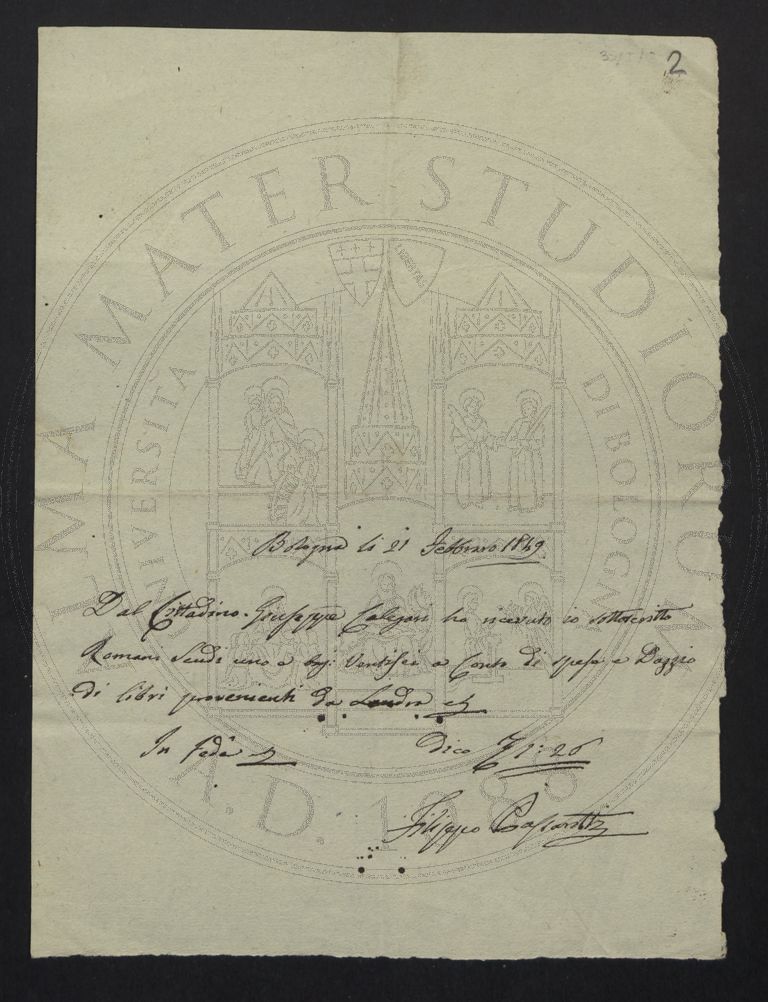 2
ALMA MATER STUDIORUM
UNIVERSITA DI BOLOGNA
A.D. 1088
Bologna li 21 Febbraro 1849
Dal Cittadino Giuseppe ho ricevuto io sottoscritto
Romani Scudi uno e baj: Ventisei a Conto di spese e Dazzio
di libri provenienti da Londra
In fede dico 1: 26
Filippo